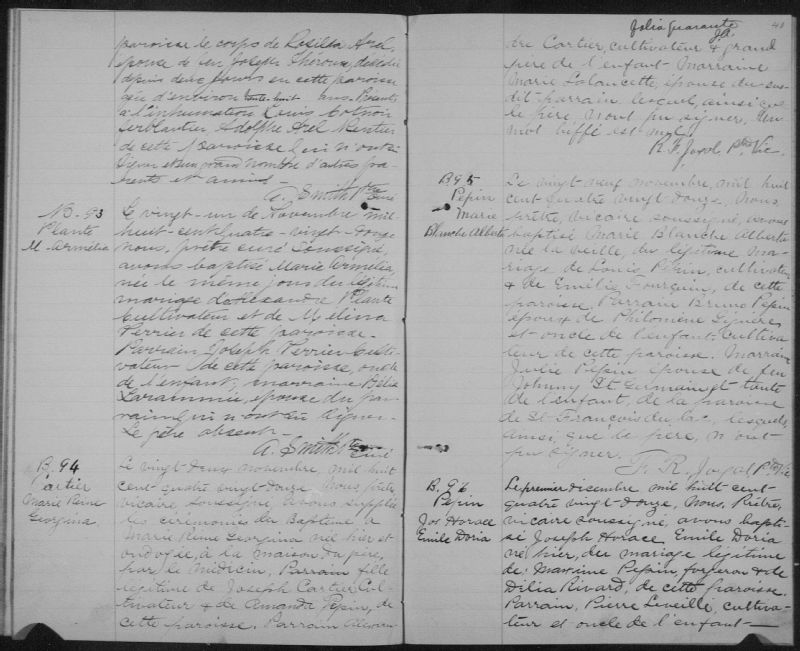 paroisse le corps de Rosilda Arel,
épouse de feu Joseph Théroux, décédée
depuis deux jours en cette paroisse
agée d'environ trente-huit ans. Présents
à l'inhumation Louis Cotnoir
ferblantier, Adolphe Arel Rentier
de cette paroisse qui n'ont su
signer et un grand nombre d'autres pa-
rents et amis.
A. Smith Ptre Curé
B-93
Plante
M-Armélia
Le vingt-un de Novembre mil
huit-cent-quatre-vingt-douze
nous, prêtre curé Soussigné,
avons baptisé Marie Armélia,
née le même jour du légitime
mariage d'Alexandre Plante
Cultivateur et de Mélina
Perrier de cette paroisse.
Parrain Joseph Perrier Culti-
vateur de cette paroisse, oncle
de l'enfant, marraine Délia
Laramée, épouse du par-
rain qui n'ont su signer.
Le père absent.
A. Smith Ptre Curé
B. 94
Cartier
Marie Reine
Georgina
Le vingt deux novembre, mil huit
cent quatre vingt douze. Nous, Prêtre
vicaire, soussigné, avons suppléé
les cérémonies du Baptême à
Marie Reine Georgina née hier et
ondoyée, à la maison du père,
par le médecin, Parrain fille
légitime de Joseph Cartier Cul-
tivateur & de Amanda Pepin, de
cette paroisse. Parrain
Folio Quarante
41
dre Cartier, cultivateur & grand
père de l'enfant Marraine
Marie Lalancette, épouse du sus-
dit parrain lesquels, ainsi que
le père, n'ont pu signer. Un
mot biffé est nul.
Ptre Vic.
B 95
Pepin
Marie
Blanche Alberta
Le vingt neuf novembre, mil huit
cent quatre vingt douze, Nous
Prêtre, vicaire soussigné, avons
baptisé Marie Blanche Alberta
née la veille, du légitime ma-
riage de Louis Pepin, cultivateur
& de Emélie de cette
paroisse. Parrain Bruno Pepin
époux de Philomène
et oncle de l'enfant. Cultiva-
teur de cette paroisse. Marraine
Julie Pepin épouse de feu
Johnny St Germain et tante
de l'enfant, de la paroisse
de St François du lac, lesquels
ainsi, que le père, n'ont
pu signer.
Ptre Vic
B. 96
Pepin
Jos Horace
Emile Doria
Le premier décembre mil huit cent-
quatre vingt douze, Nous, Prêtre,
vicaire soussigné, avons bapti-
sé Joseph Horace Emile Doria
né hier, du mariage légitime
de Maxime Pepin, forgeron & de
Dilia Rivard, de cette paroisse.
Parrain, Pierre Leveille, cultiva-
teur et oncle de l'enfant